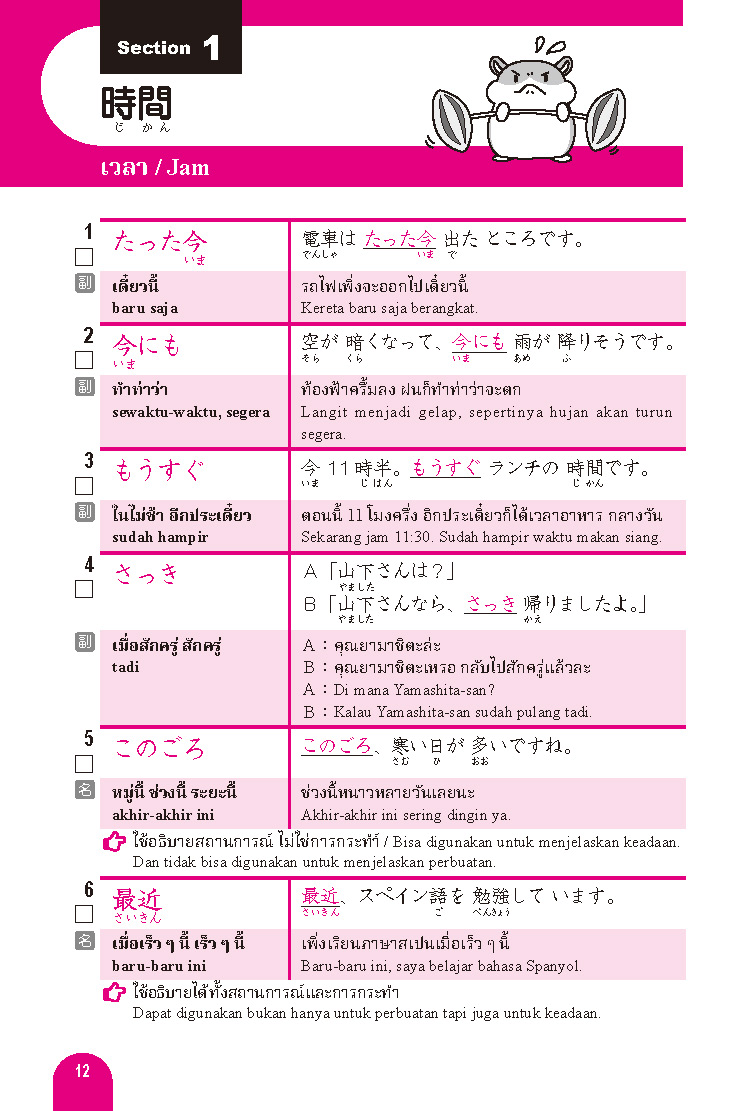 Section 1
時間
じ かん
เวลา / Jam
1
たった今
いま
電車は たった今 出た ところです。
でんしゃ いま で
副
เดี๋ยวนี้
รถไฟเพิ่งจะออกไปเดี๋ยวนี้
baru saja
Kereta baru saja berangkat.
2
今にも
いま
空が 暗くなって、今にも 雨が 降りそうです。
そら くら いま あめ ふ
副
ทำท่าว่า
ท้องฟ้าครึ้มลง ฝนก็ทำท่าว่าจะตก
sewaktu-waktu, segera
Langit menjadi gelap, sepertinya hujan akan turun
segera.
3
もうすぐ
今 11時半。もうすぐ ランチの 時間です。
いま じ はん じ かん
副
ในไม่ช้า อีกประเดี๋ยว
ตอนนี้ 11 โมงครึ่ง อีกประเดี๋ยวก็ได้เวลาอาหาร กลางวัน
sudah hampir
Sekarang jam 11:30. Sudah hampir waktu makan siang.
4
さっき
A「山下さんは？」
やました
B「山下さんなら、さっき 帰りましたよ。」
やました かえ
副
เมื่อสักครู่ สักครู่
tadi
A：คุณยามาชิตะล่ะ
B：คุณยามาชิตะเหรอ กลับไปสักครู่แล้วละ
A：Di mana Yamashita-san?
B：Kalau Yamashita-san sudah pulang tadi.
5
このごろ
このごろ、寒い日が 多いですね。
さむ ひ おお
名
หมู่นี้ ช่วงนี้ ระยะนี้
ช่วงนี้หนาวหลายวันเลยนะ
akhir-akhir ini
Akhir-akhir ini sering dingin ya.
ใช้อธิบายสถานการณ์ ไม่ใช่การกระทำ / Bisa digunakan untuk menjelaskan keadaan.
Dan tidak bisa digunakan untuk menjelaskan perbuatan.
6
最近
さいきん
最近、スペイン語を 勉強して います。
さいきん ご べんきょう
名
เมื่อเร็ว ๆ นี้ เร็ว ๆ นี้
เพิ่งเรียนภาษาสเปนเมื่อเร็ว ๆ นี้
baru-baru ini
Baru-baru ini, saya belajar bahasa Spanyol.
ใช้อธิบายได้ทั้งสถานการณ์และการกระทำ
Dapat digunakan bukan hanya untuk perbuatan tapi juga untuk keadaan.
12